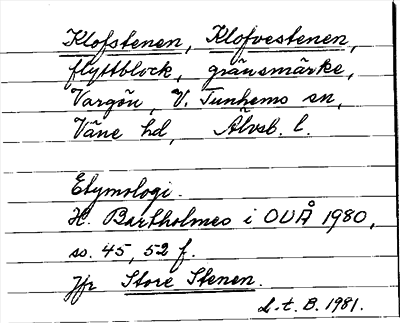 Klofstenen, Klofvestenen,
flyttblock, gränsmärke,
Vargön, V. Tunhems sn,
Väne hd, Älvsb. l.
Etymologi.
H. Bartholmes i OUÅ 1980,
ss. 45, 52 f.
Jfr Store Stenen.
L.t. B. 1981.